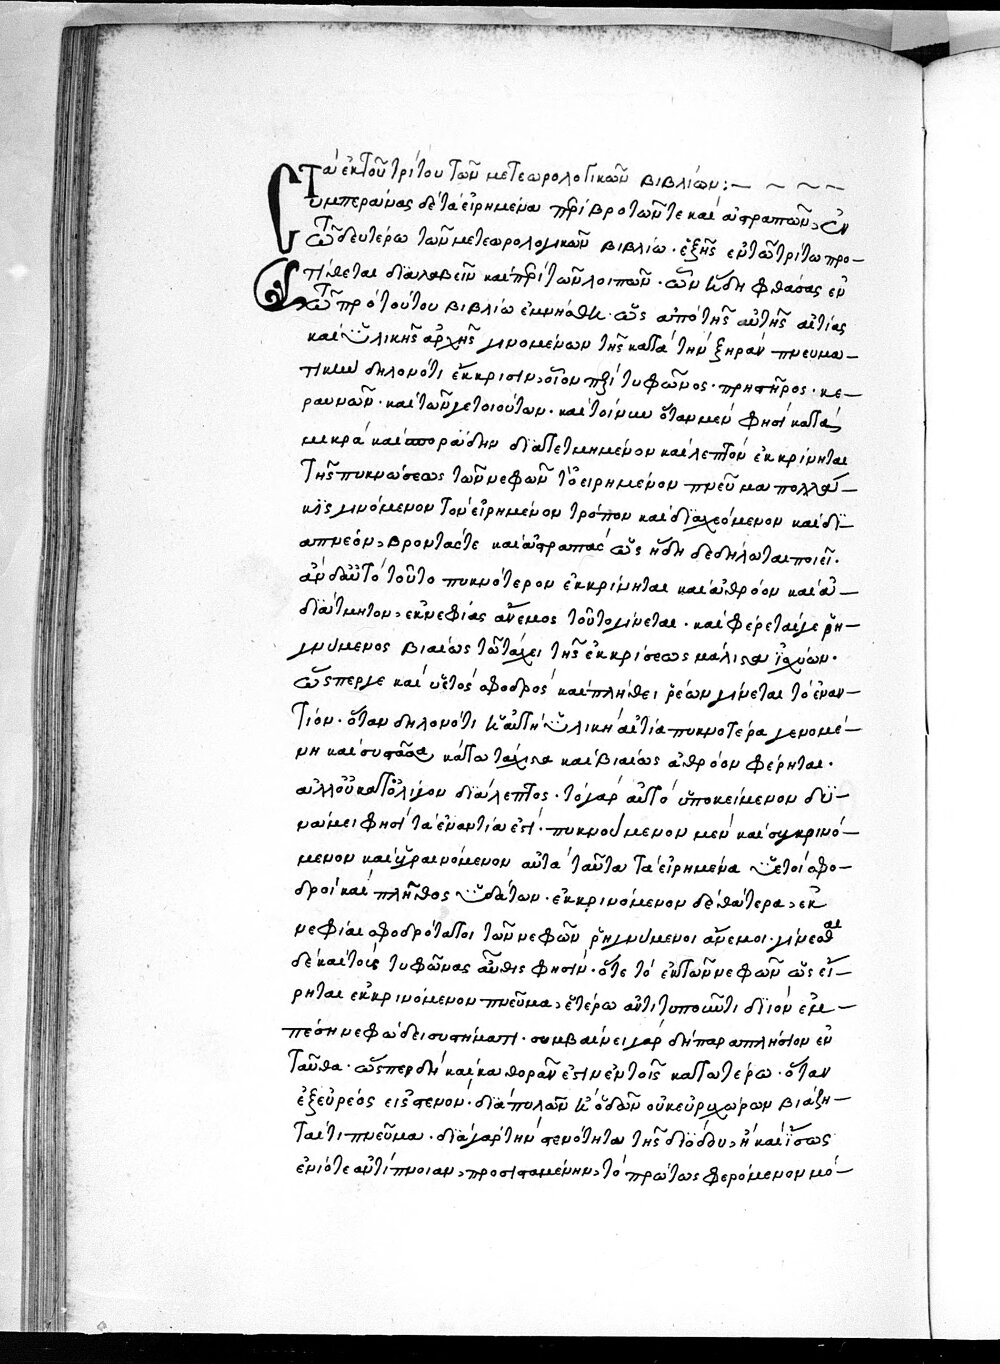 Τὰ ἐκ τοῦ τρίτου τῶν μετεωρολογικῶν βιβλίων:— ~ ~ ~ ~
Συμπεράνας δὲ τὰ εἰρημένα περὶ βροντῶν τε καὶ ἀστραπῶν, ἐν
τῶ δευτέρω τῶν μετεωρολογικῶν βιβλίω· ἑξῆς ἐν τῶ τρίτω προ-
τίθεται διαλαβεῖν καὶ περὶ τῶν λοιπῶν· ὧν ἤδη φθάσας ἐν
τῶ πρὸ τούτου βιβλίω ἐμνήσθη· ὡς ἀπὸ τῆς αὐτῆς αἰτίας
καὶ ὑλικῆς ἀρχῆς γινομένων τῆς κατὰ τὴν ξηρὰν πνευμα-
τικὴν δηλονότι ἔκκρισιν, οἷον περὶ τυφῶνος· πρηστῆρος· κε-
ραυνῶν· καὶ τῶν γε τοιούτων· καὶ τοίνυν ὅταν μέν φησι κατὰ
μικρὰ καὶ σποράδην διατετμημένον καὶ λεπτὸν ἐκκρίνηται
τῆς πυκνώσεως τῶν νεφῶν τὸ εἰρημένον πνεῦμα πολλά-
κις γινόμενον τὸν εἰρημένον τρόπον καὶ διαχεόμενον καὶ δι-
απνέον, βροντάς τε καὶ ἀστραπὰς ὡς ἤδη δεδήλωται ποιεῖ·
ἂν δ' αὐτὸ τοῦτο πυκνότερον ἐκκρίνηται καὶ ἀθρόον καὶ ἀ-
διάτμητον, ἐκνεφίας ἄνεμος τοῦτο γίνεται· καὶ φέρεταί γε ῥη-
γνύμενος βιαίως τῶ τάχει τῆς ἐκκρίσεως μάλιστα ἰσχύων·
ὥσπερ γε καὶ ὑετὸς σφοδρὸς καὶ πλήθει ῥέων γίνεται τὸ ἐναν-
τίον· ὅταν δηλονότι ἡ αὐτὴ ὑλικὴ αἰτία πυκνοτέρα γενομέ-
νη καὶ συστᾶσα κάτω τάχιστα καὶ βιαίως ἀθρόον φέρηται·
ἀλλ' οὐ κατ' ὀλίγον διάλεπτος· τὸ γὰρ αὐτὸ ὑποκείμενον δυ-
νάμει φησὶ τὰ ἐναντία ἐστί· πυκνούμενον μὲν καὶ συγκρινό-
μενον καὶ ὑγραινόμενον αὐτὰ ταῦτα τὰ εἰρημένα ὑετοὶ σφο-
δροὶ καὶ πλῆθος ὑδάτων· ἐκκρινόμενον δὲ θάτερα, ἐκ
νεφίαι σφοδρότατοι τῶν νεφῶν ῥηγνύμενοι ἄνεμοι· γίνεσθαι
δὲ καὶ τοὺς τυφῶνας αὖθις φησίν· ὅτε τὸ ἐκ τῶν νεφῶν ὡς εἴ-
ρηται ἐκκρινόμενον πνεῦμα, ἑτέρω ἀντιτυποῦντι διιὸν ἐμ-
πέση νεφώδει συστήματι· συμβαίνει γὰρ δὴ παραπλήσιον ἐν
ταῦθα· ὥσπερ δὴ καὶ καθορᾶν ἐστιν ἐν τοῖς κατωτέρω· ὅταν
ἐξ εὐρέος εἰς στενόν· διὰ πυλῶν ἢ ὁδῶν οὐκ εὐρυχώρων βιάζη-
ται τι πνεῦμα· διὰ γὰρ τὴν στενότητα τῆς διόδου, ἢ καὶ ἴσως
ἐνίοτε ἀντίπνοιαν, προσισταμένην, τὸ πρώτως φερόμενον μό-